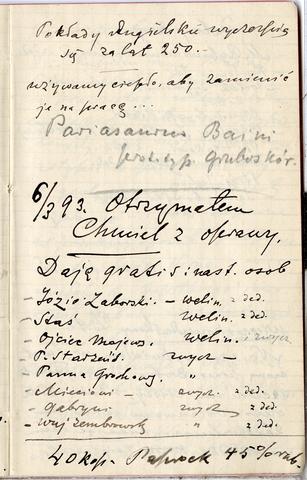 Pokłady Angielskie wyczerpią
się za lat 250.
używamy ciepło, aby zamienić
je na pracę...
Pariasaurus Baini
prototyp Gruboskór.
6/3 93. Otrzymałem
Chmiel z oprawy.
Daję gratis i nast. osob
- Józio Zaborski. - welin. z ded.
- Staś welin. z ded.
- Ojciec Majews. welin. i zwycz.
- P. Starzeńs. zwycz -
- Panna Grochows. "
- zwycz. z ded.
- Gabryni zwycz z ded.
- Wuj Zembrowski " z ded.
40 kop. Paprock 45% rab.